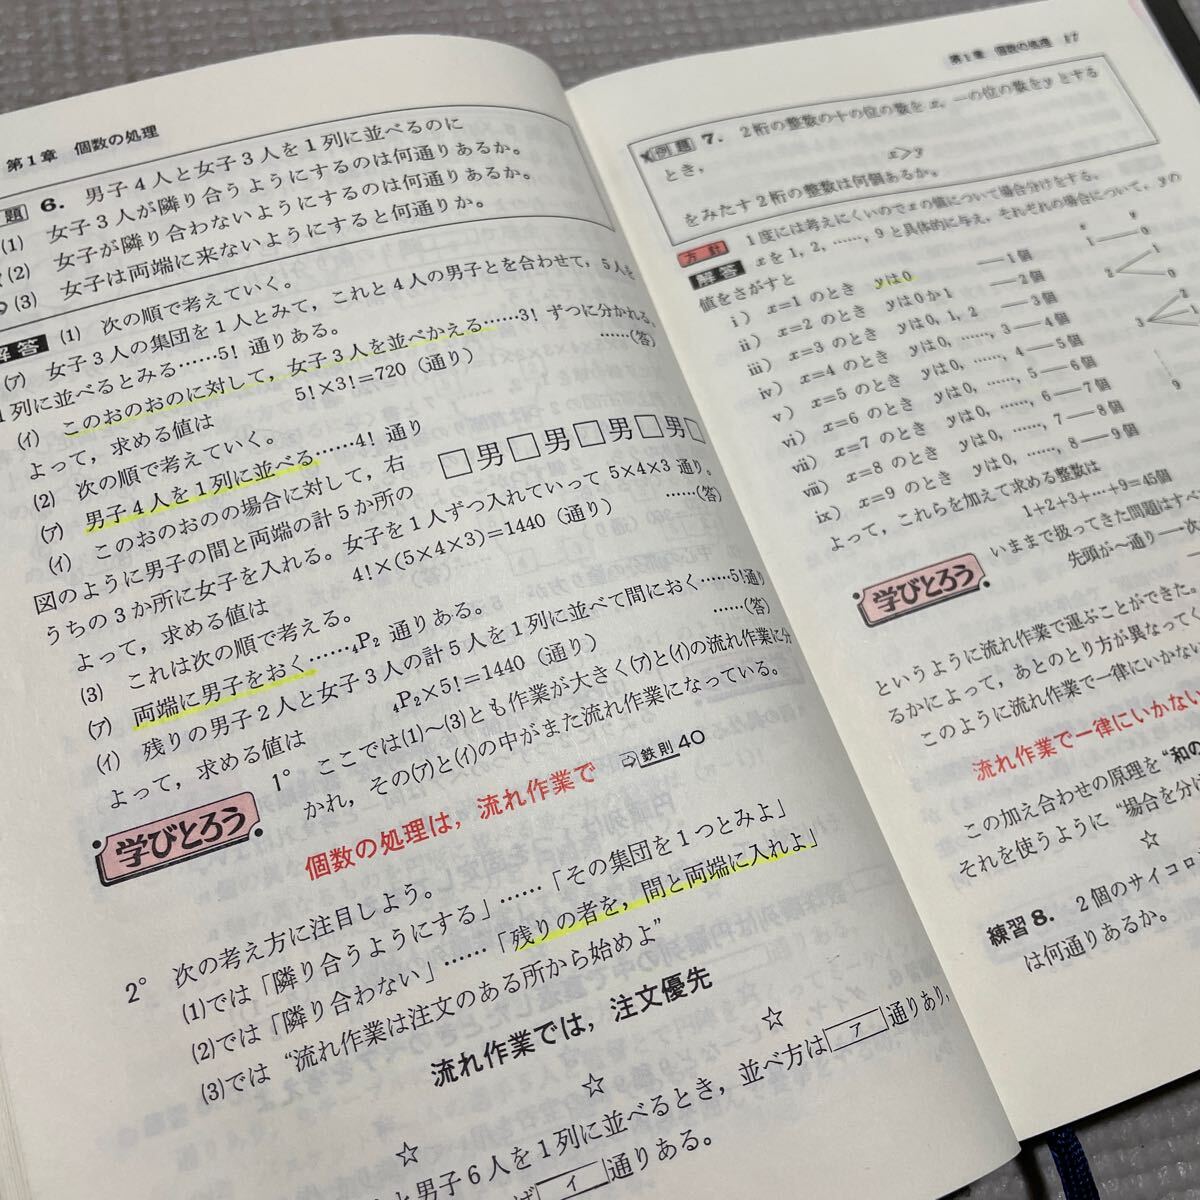 第1章 個数の処理
題 6. 男子4人と女子3人を1列に並べるのに
(1) 女子3人が隣り合うようにするのは何通りあるか。
(2) 女子が隣り合わないようにするのは何通りあるか。
(3) 女子は両端に来ないようにすると何通りか。
解答 (1) 次の順で考えていく。
(ア) 女子3人の集団を1人とみて，これと4人の男子とを合わせて，5人を
1列に並べるとみる……5! 通りある。
(イ) このおのおのに対して，女子3人を並べかえる……3! ずつに分かれる。
よって，求める値は 5!×3!=720（通り） ……(答)
(2) 次の順で考えていく。
(ア) 男子4人を1列に並べる……4! 通り
(イ) このおのおのの場合に対して，右
□男□男□男□男□
図のように男子の間と両端の計5か所の
うちの3か所に女子を入れる。女子を1人ずつ入れていって 5×4×3 通り。
よって，求める値は 4!×(5×4×3)=1440（通り） ……(答)
(3) これは次の順で考える。
(ア) 両端に男子をおく……₄P₂ 通りある。
(イ) 残りの男子2人と女子3人の計5人を1列に並べて間におく……5!通り
よって，求める値は ₄P₂×5!=1440（通り） ……(答)
学びとろう 1° ここでは(1)～(3)とも作業が大きく(ア)と(イ)の流れ作業に分
かれ，その(ア)と(イ)の中がまた流れ作業になっている。
個数の処理は，流れ作業で ⇨鉄則40
2° 次の考え方に注目しよう。
(1)では「隣り合うようにする」……「その集団を1つとみよ」
(2)では「隣り合わない」……「残りの者を，間と両端に入れよ」
(3)では “流れ作業は注文のある所から始めよ”
流れ作業では，注文優先
☆ ☆ ☆
と男子6人を1列に並べるとき，並べ方は ア 通りあり，
ば イ 通りある。
第1章 個数の処理 17
例題 7. 2桁の整数の十の位の数を x，一の位の数を y とする
とき，
x>y
をみたす2桁の整数は何個あるか。
方針 1度には考えにくいので x の値について場合分けをする。
解答 x を 1, 2, ……, 9 と具体的に与え，それぞれの場合について，y の
値をさがすと
i) x=1 のとき y は 0 ——1個
ii) x=2 のとき y は 0 か 1 ——2個
iii) x=3 のとき y は 0, 1, 2 ——3個
iv) x=4 のとき y は 0, ……, 3——4個
v) x=5 のとき y は 0, ……, 4——5個
vi) x=6 のとき y は 0, ……, 5——6個
vii) x=7 のとき y は 0, ……, 6——7個
viii) x=8 のとき y は 0, ……, 7——8個
ix) x=9 のとき y は 0, ……, 8——9個
x y
1 0
2 1
0
3 2
1
9
よって，これらを加えて求める整数は
1+2+3+…+9=45個
学びとろう いままで扱ってきた問題はすべ
先頭が～通り——次
というように流れ作業で運ぶことができた。
るかによって，あとのとり方が異なって
このように流れ作業で一律にいかない
流れ作業で一律にいかない
この加え合わせの原理を “和の
それを使うように “場合を分け
☆
練習 8. 2個のサイコロ
は何通りあるか。